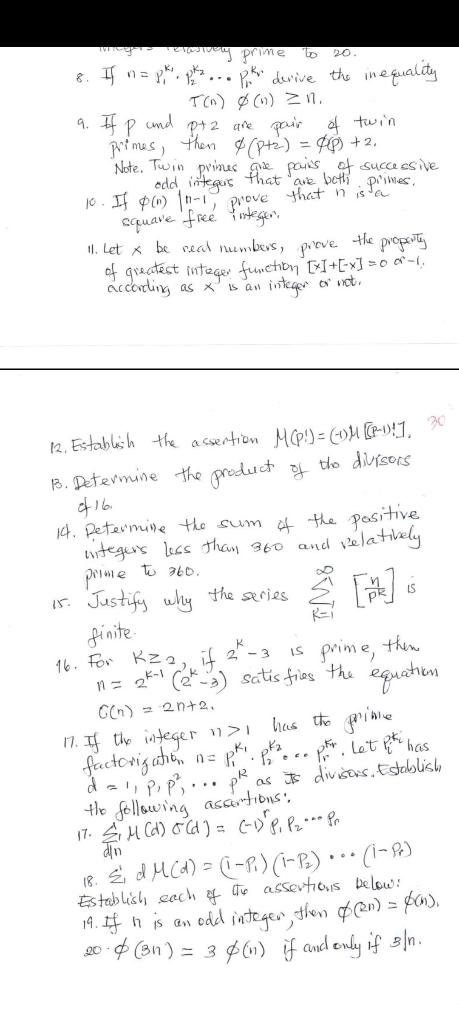 prime to 20.
8. If n = p₁^k₁. p₂^k₂ ... pᵣ^kᵣ derive the inequality
τ(n) φ(n) ≥ n.
9. If p and p+2 are pair of twin
primes, then φ(p+2) = φ(p) + 2.
Note. Twin primes are pairs of successive
odd integers that are both primes.
10. If φ(n) | n-1, prove that n is a
square free integer.
11. Let x be real numbers, prove the property
of greatest integer function [x]+[-x] = 0 or -1,
according as x is an integer or not.
30
12. Establish the assertion M(p!) = (-1)M[(p-1)!].
13. Determine the product of the divisors
of 16.
14. Determine the sum of the positive
integers less than 360 and relatively
prime to 360.
15. Justify why the series ∑_{k=1}^{∞} [n/p^k] is
finite.
16. For K ≥ 2, if 2^k - 3 is prime, then
n = 2^{k-1} (2^k - 3) satisfies the equation
σ(n) = 2n+2.
17. If the integer n > 1 has the prime
factorization n = p₁^k₁. p₂^k₂ ... pᵣ^kᵣ. Let pᵢ^kᵢ has
d = 1, p, p², ... p^k as its divisors. Establish
the following assertions:
17. ∑_{d|n} M(d) σ(d) = (-1)^r p₁ p₂ ... pᵣ
18. ∑ d M(d) = (1-p₁) (1-p₂) ... (1-pᵣ)
Establish each of the assertions below:
19. If n is an odd integer, then φ(2n) = φ(n).
20. φ(3n) = 3 φ(n) if and only if 3|n.